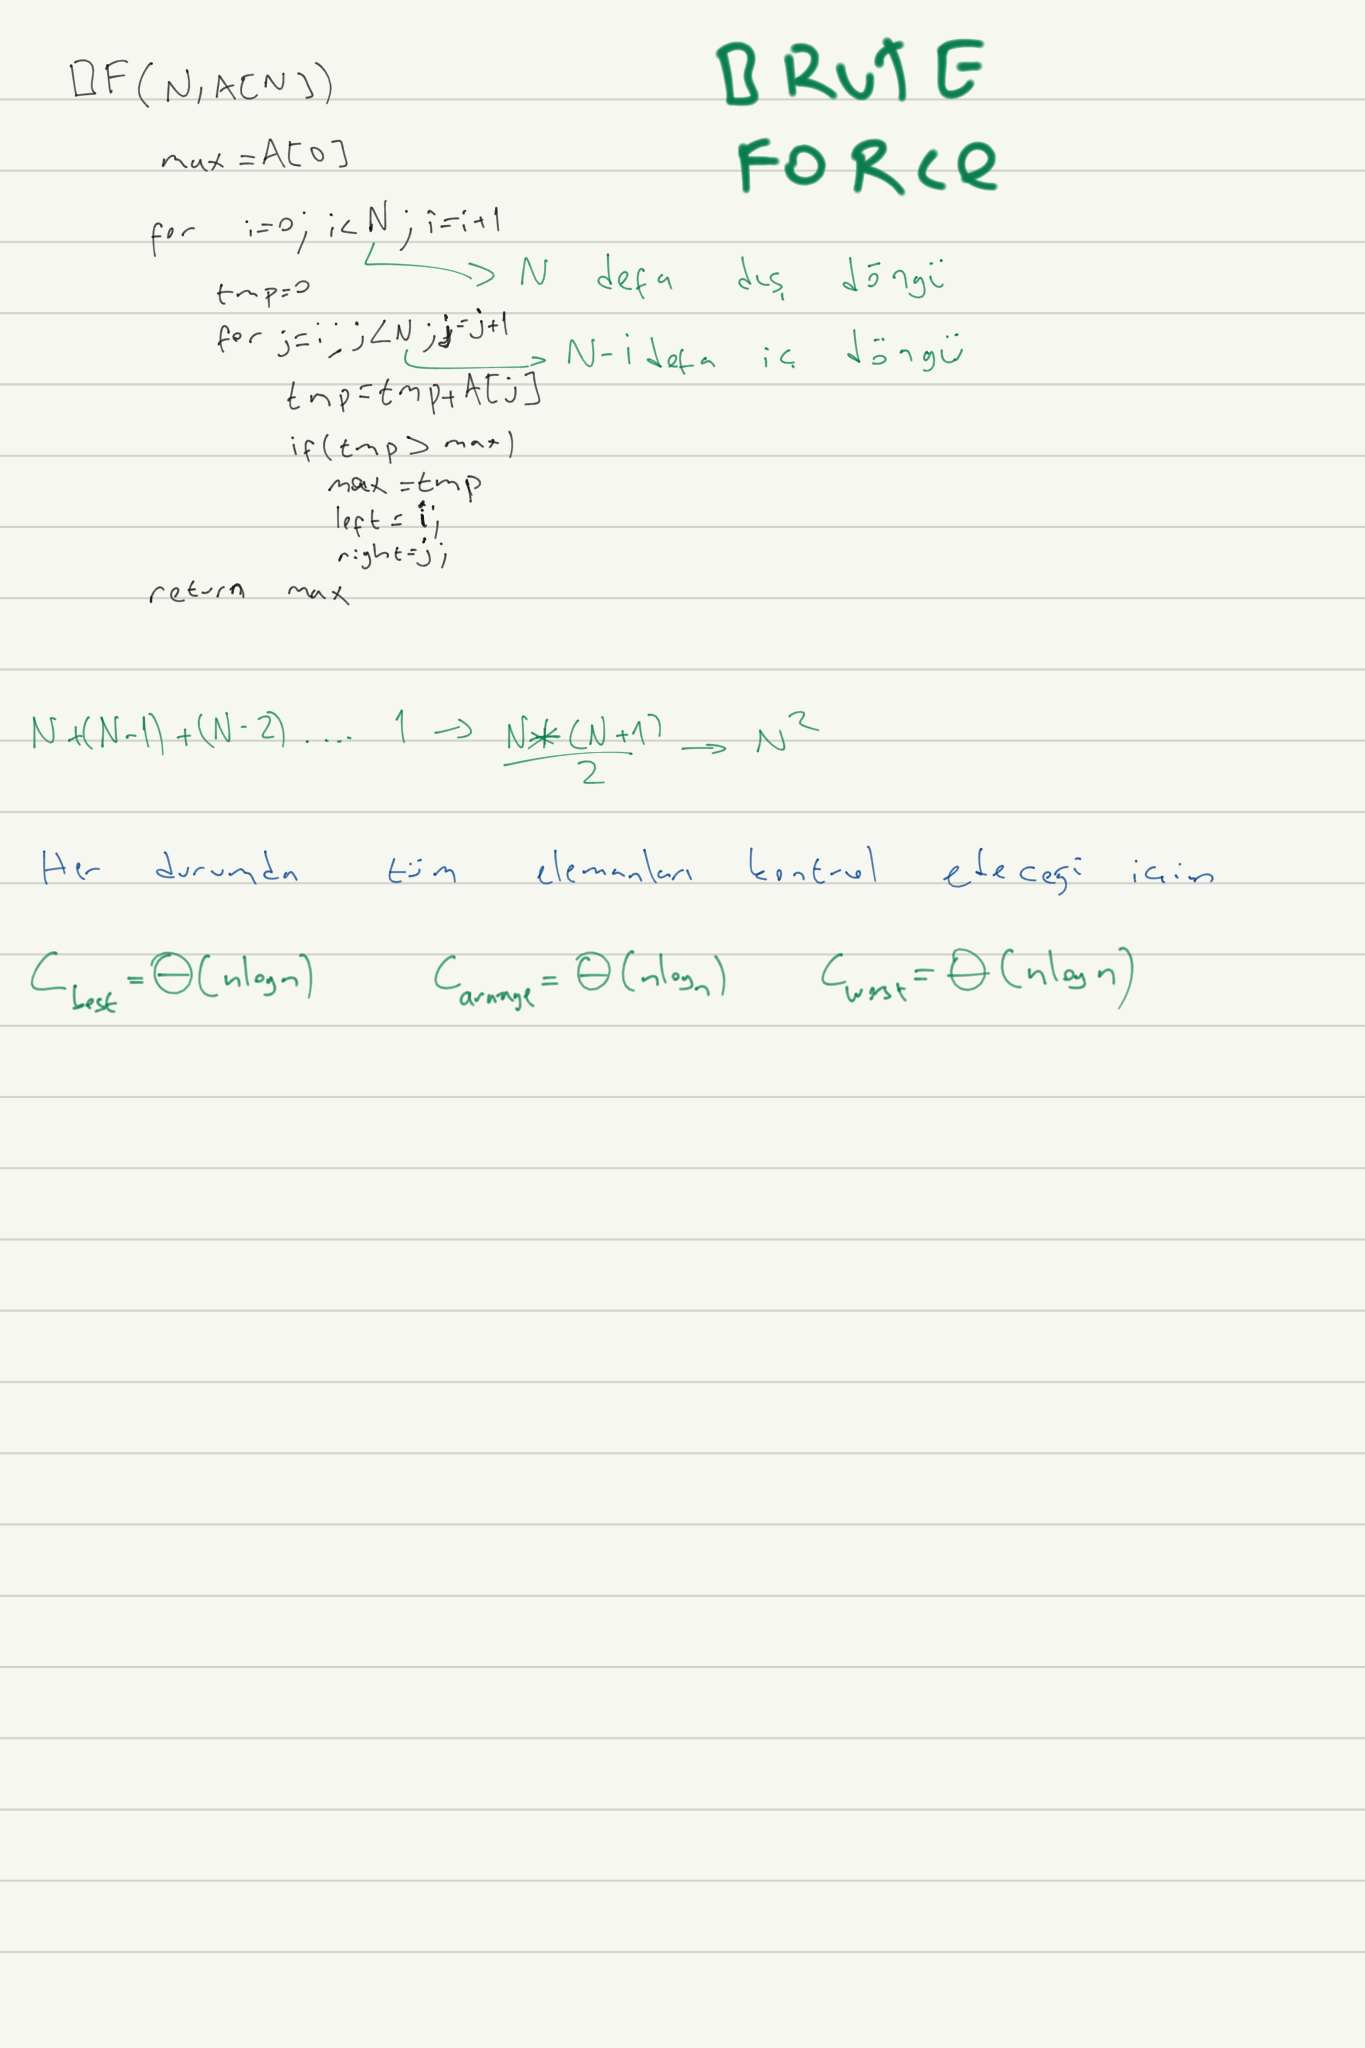 BRUTE
FORCe
BF(N,A[N])
max = A[0]
for i=0; i<N; i=i+1
N defa dış döngü
tmp=0
for j=i; j<N; j=j+1
N-i defa iç döngü
tmp=tmp+A[j]
if(tmp > max)
max =tmp
left = i;
right=j;
return max
N+(N-1)+(N-2) .... 1 → N*(N+1)/2 → N²
Her durumda tüm elemanları kontrol edeceği için
C_best = Θ(nlogn) C_avarage = Θ(nlogn) C_worst = Θ(nlogn)